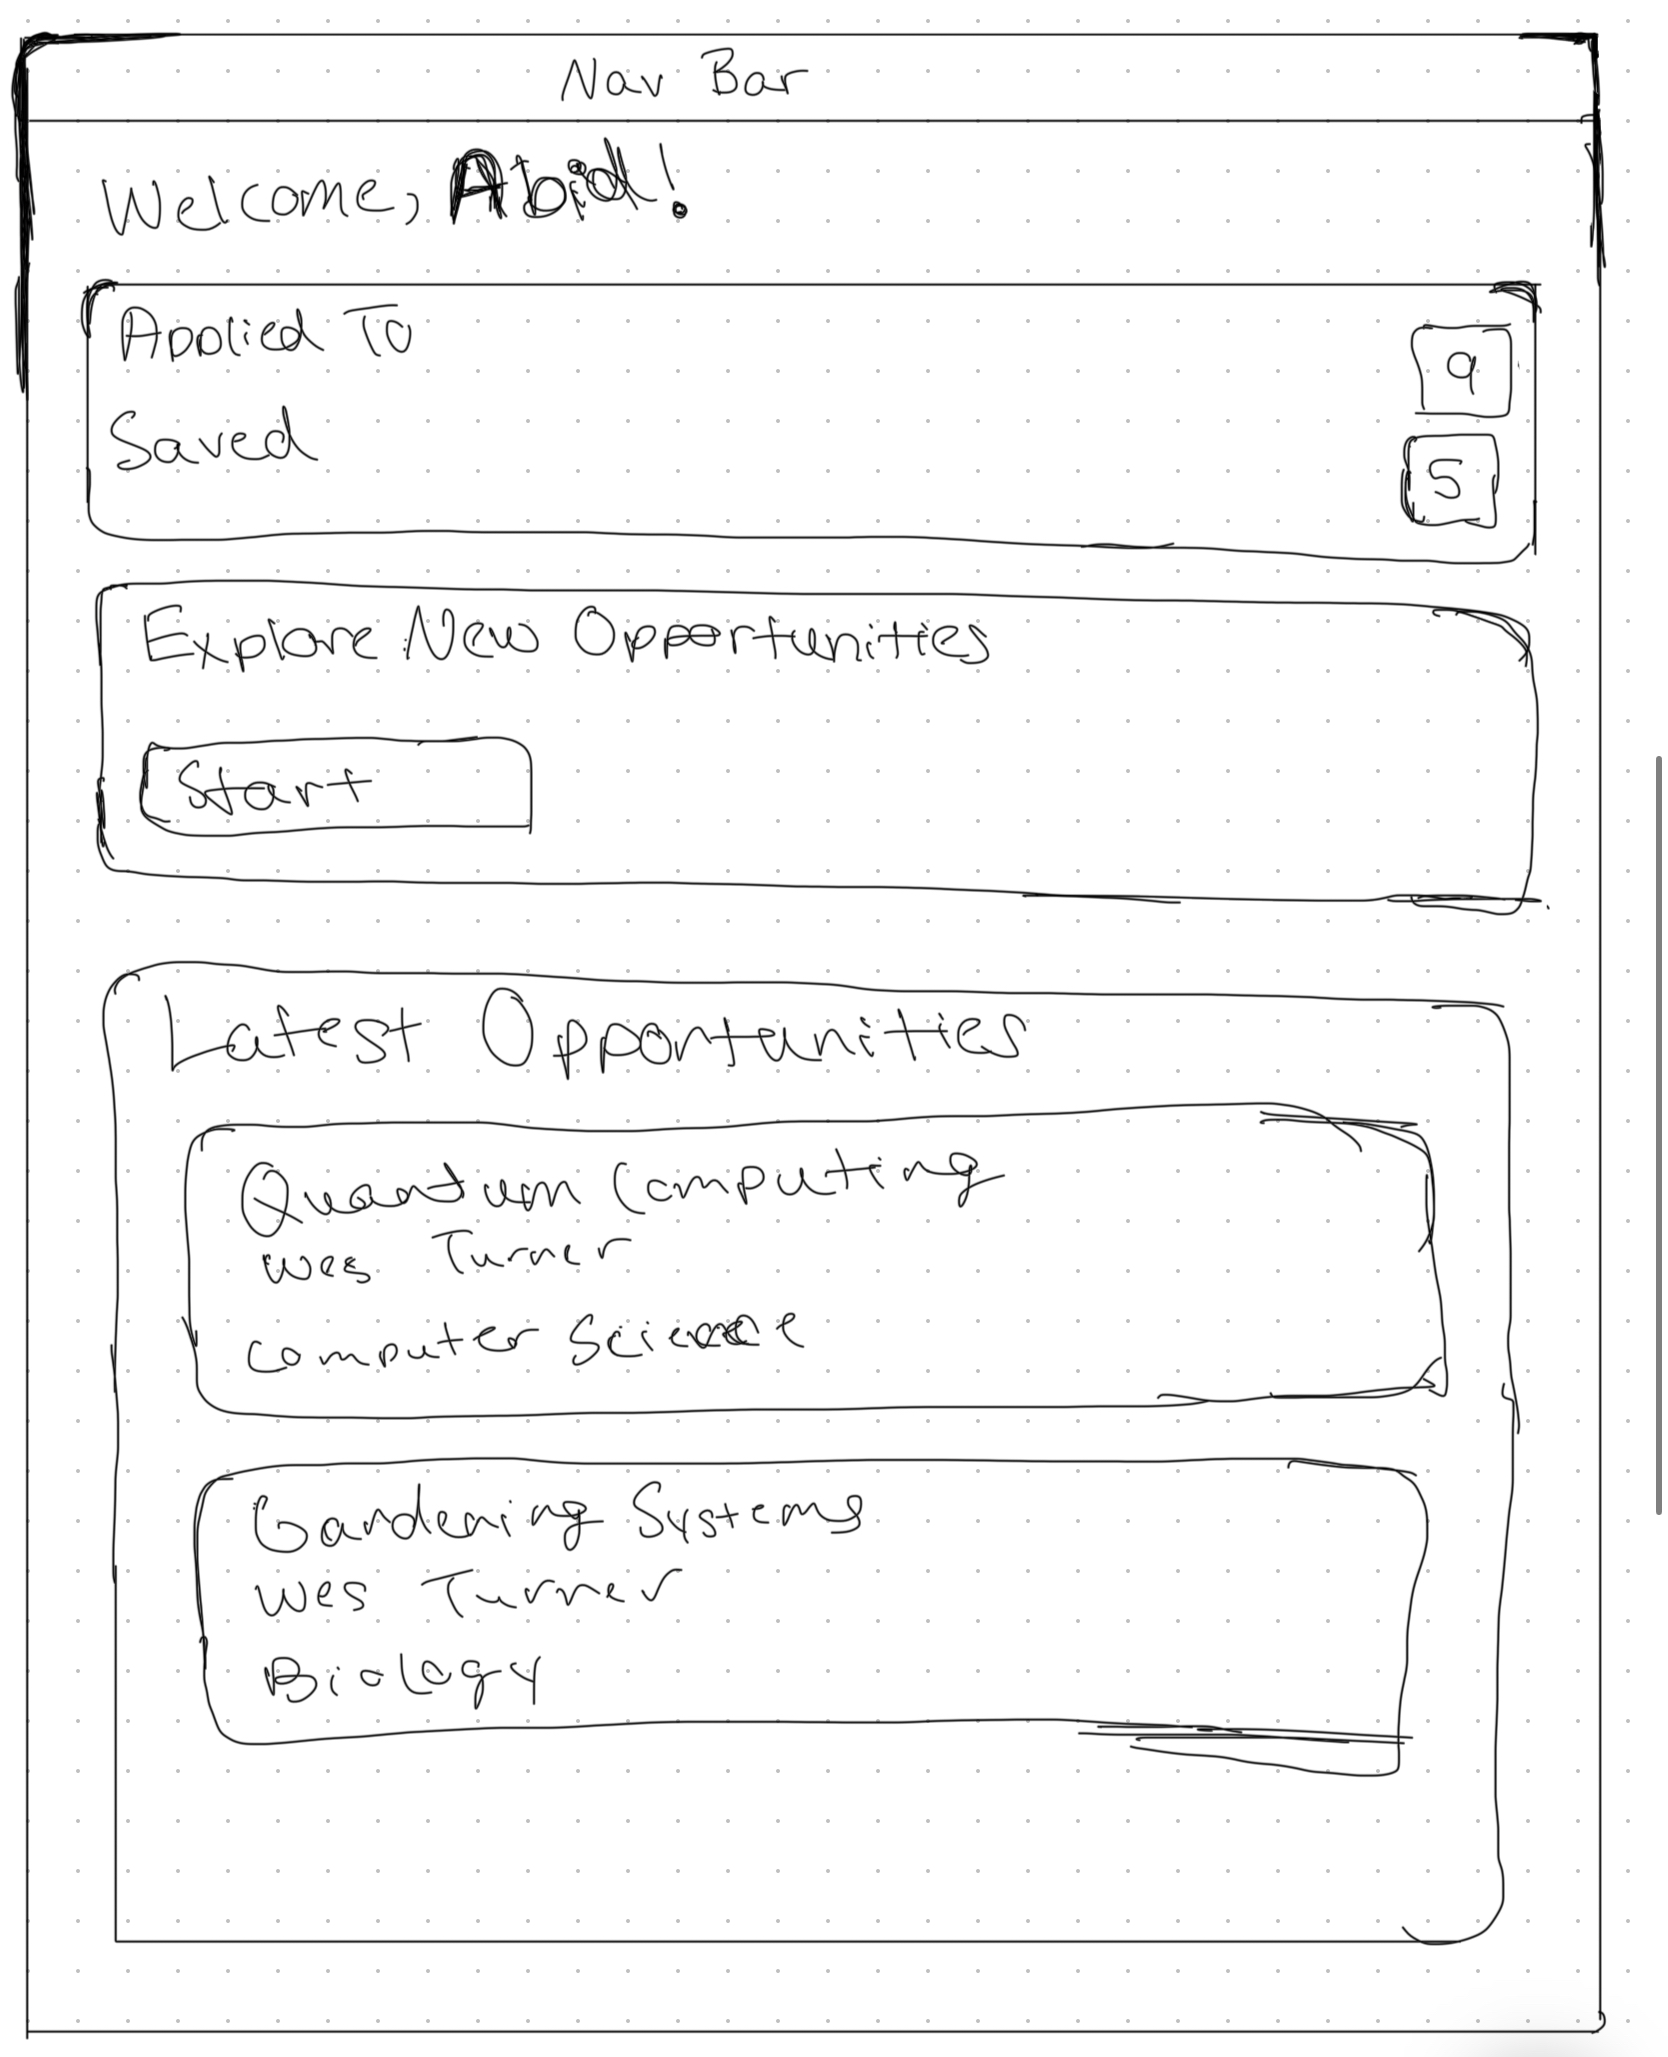 Nav Bar
Welcome, Abid!
Applied To
9
Saved
5
Explore New Opportunities
Start
Latest Opportunities
Quantum Computing
Wes Turner
Computer Science
Gardening Systems
Wes Turner
Biology